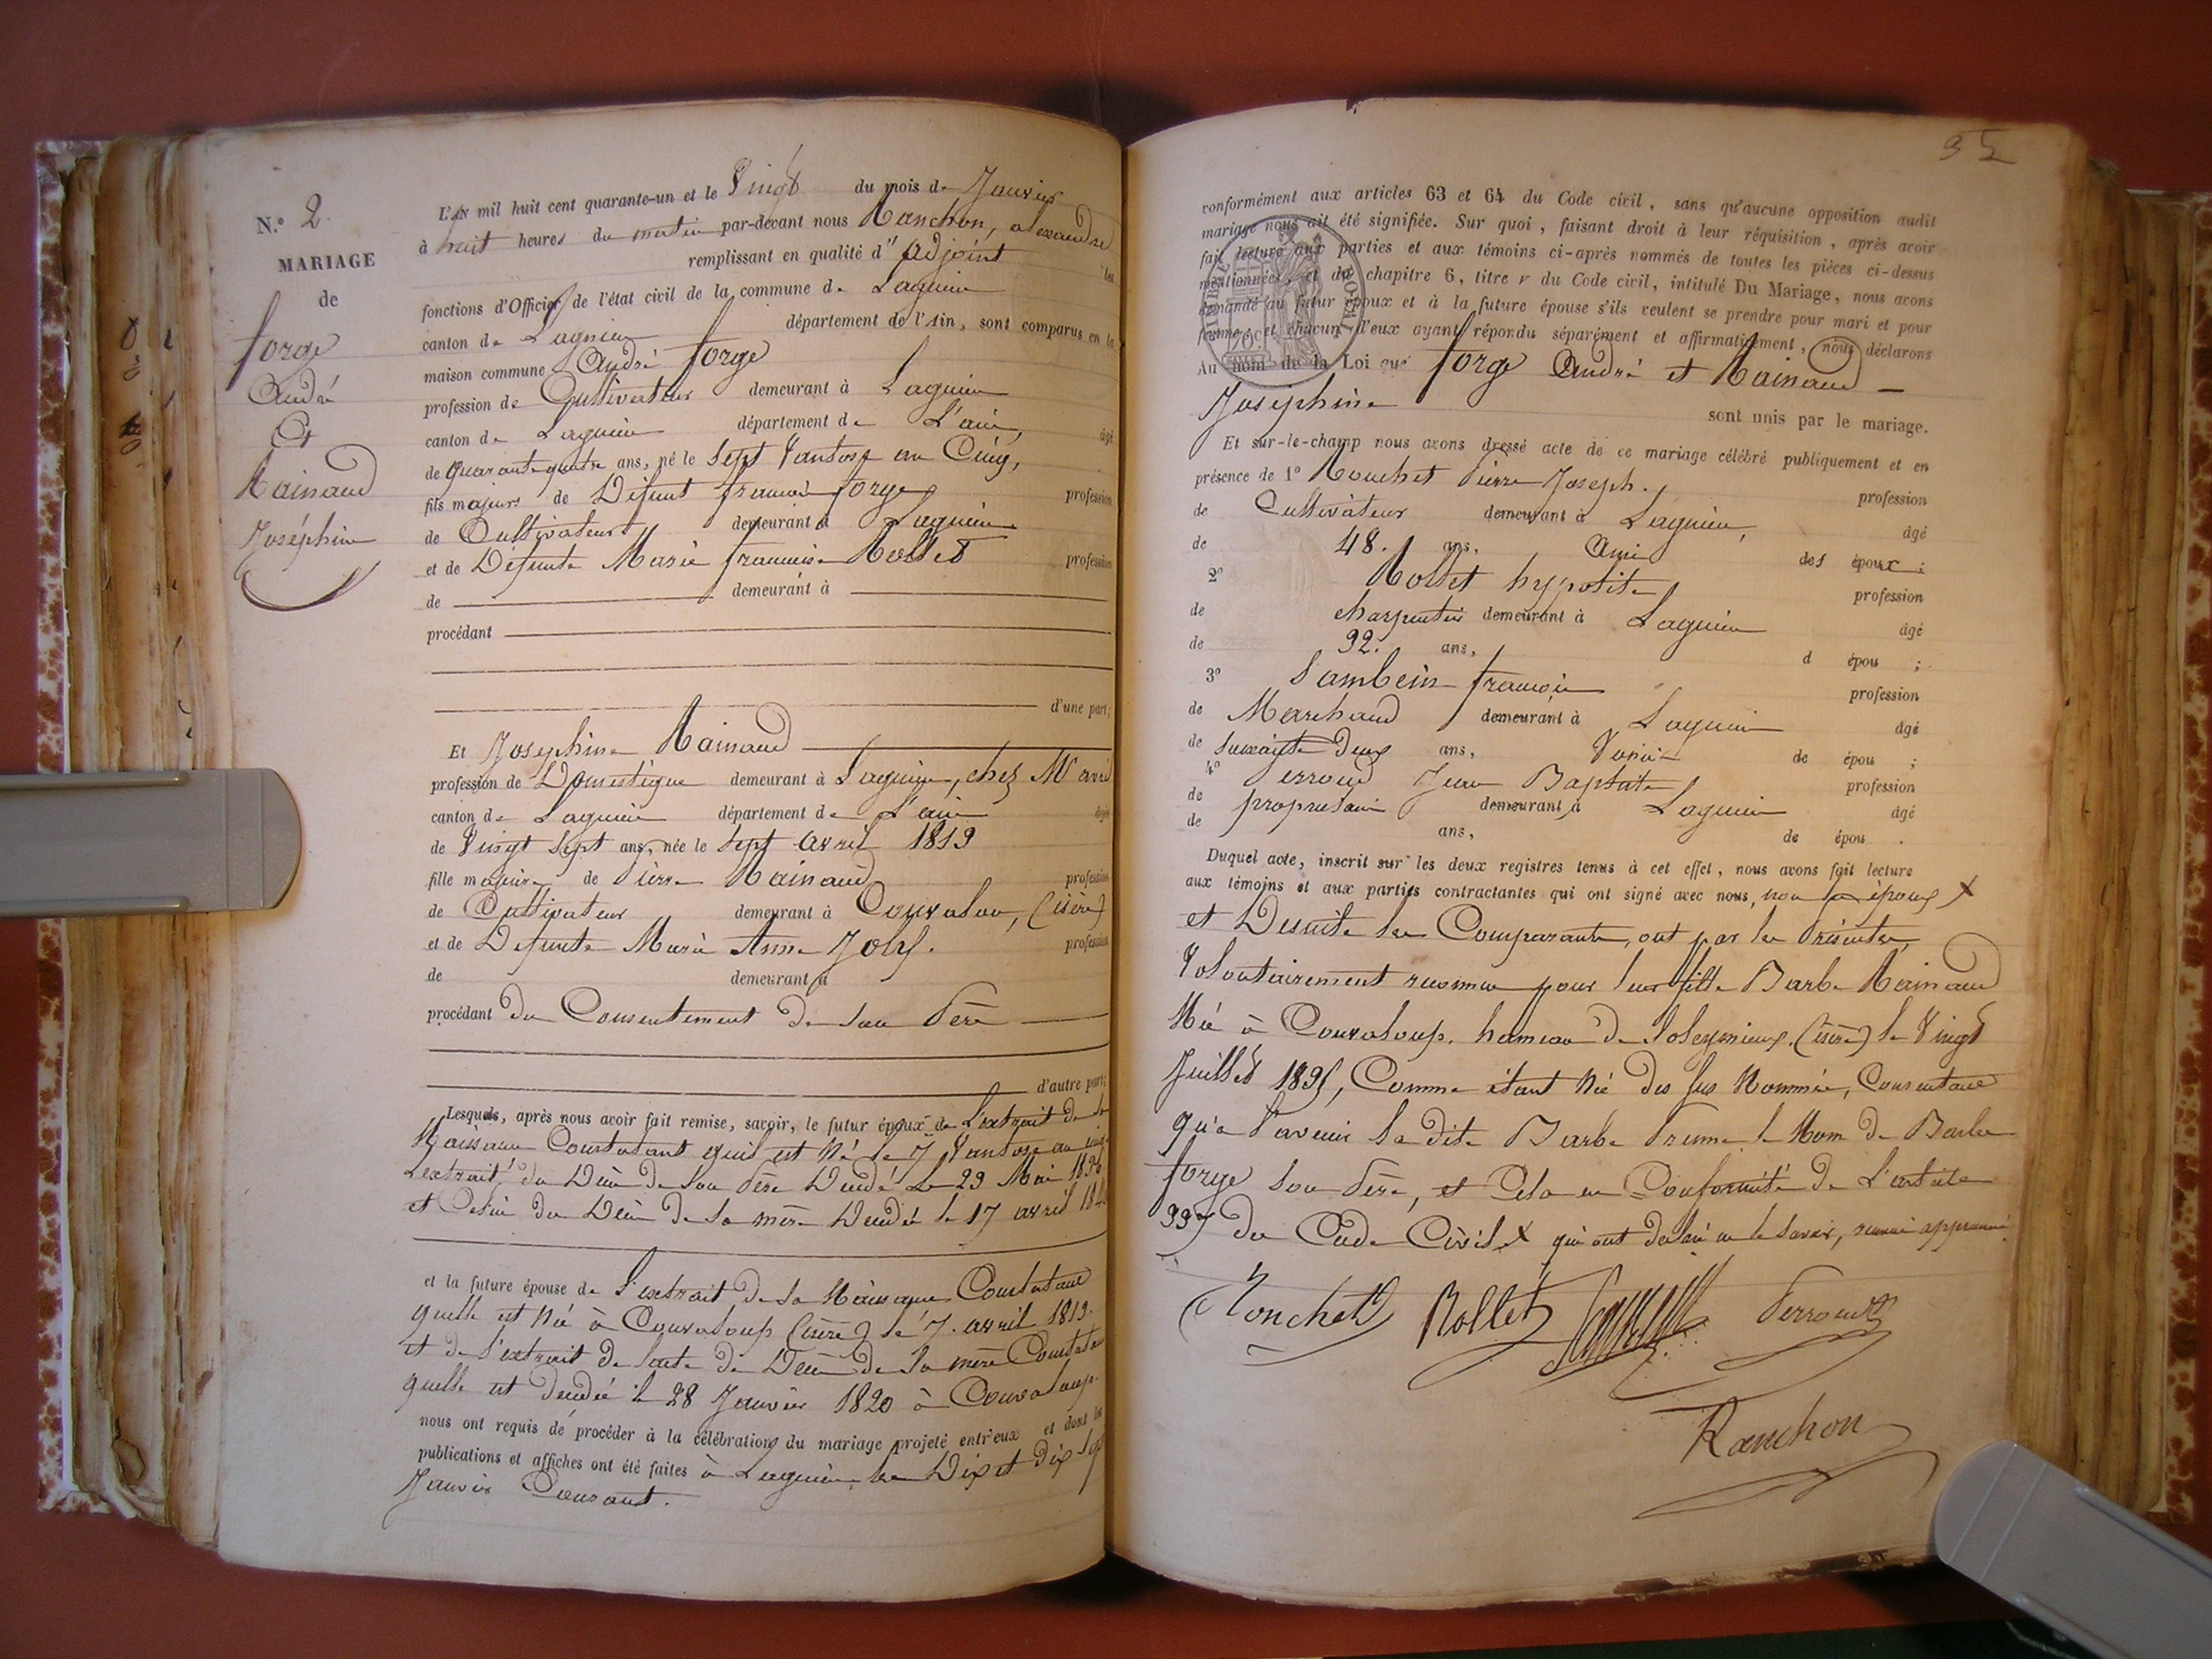 N.° 2
MARIAGE
de
forge
André
Et
Rainaud
Joséphine
L'AN mil huit cent quarante-un et le Vingt du mois de Janvier
à huit heures du matin par-devant nous Ranchon, alexandre
remplissant en qualité d'adjoint les
fonctions d'Officier de l'état civil de la commune de Lagnieu
canton de Lagnieu département de l'Ain, sont comparus en la
maison commune André forge
profession de Cultivateur demeurant à Lagnieu
canton de Lagnieu département de L'ain, âgé
de quarante quatre ans, né le Sept Vantose an Cinq,
fils majeur de Défunt françois forge profession
de Cultivateur demeurant à Lagnieu
et de Défunte Marie françoise Rollet profession
de demeurant à
procédant
d'une part;
Et Josephine Rainaud
profession de Domestique demeurant à Lagnieu, chez Mr
canton de Lagnieu département de L'ain âgé
de Vingt Sept ans, née le Sept avril 1813
fille majeure de Pierre Rainaud profession
de Cultivateur demeurant à Couvalou, (isère)
et de Defunte Marie Anne Joly. profession
de demeurant à
procédant du Consentement de son Père
d'autre part;
Lesquels, après nous avoir fait remise, savoir, le futur époux de L'extrait de sa
Naissance Constatant quil est Né le 7 Vantose an cinq
L'extrait du Décès de son Père Décédé Le 23 Mai
et Celui du Décès de sa mère Décédée le 17 avril
et la future épouse de L'extrait de sa Naissance Constatant
quelle est Née à Couvaloup (isère) le 7. avril 1813.
et de l'extrait de l'acte de Décès de sa mère Constatant
quelle est décédée le 28 Janvier 1820 à Couvaloup.
nous ont requis de procéder à la célébration du mariage projeté entr'eux et dont les
publications et affiches ont été faites à Lagnieu, les Dix et Dix Sept
Janvier Courant.
35
conformément aux articles 63 et 64 du Code civil, sans qu'aucune opposition audit
mariage nous ait été signifiée. Sur quoi, faisant droit à leur réquisition, après avoir
fait lecture aux parties et aux témoins ci-après nommés de toutes les pièces ci-dessus
mentionnées, et du chapitre 6, titre v du Code civil, intitulé Du Mariage, nous avons
demandé au futur époux et à la future épouse s'ils veulent se prendre pour mari et pour
femme; et chacun d'eux ayant répondu séparément et affirmativement, nous déclarons
Au nom de la Loi que forge André et Rainaud
Joséphine sont unis par le mariage.
Et sur-le-champ nous avons dressé acte de ce mariage célébré publiquement et en
présence de 1° Ronchet Pierre Joseph. profession
de Cultivateur demeurant à Lagnieu, âgé
de 48. ans, Ami des époux;
2° Rollet hypolite profession
de charpentier demeurant à Lagnieu âgé
de 32. ans, d épou ;
3° françois profession
de Marchand demeurant à Lagnieu âgé
de Soixante Deux ans, Voisin de épou ;
4° Perroud Jean Baptiste profession
de propriétaire demeurant à Lagnieu âgé
de ans, de épou .
Duquel acte, inscrit sur les deux registres tenus à cet effet, nous avons fait lecture
aux témoins et aux parties contractantes qui ont signé avec nous, non les époux x
et Desuite les Comparants, ont par les Présentes,
Volontairement reconnu pour leur fille Barbe Rainaud
Née à Couvaloup. hameau de Soleymieux. (isère) le Vingt
Juillet, Comme étant Née des sus Nommés, Consentant
qu'a l'avenir la dite Barbe Prenne le Nom de Barbe
forge son Père, et Cela en Conformité de L'article
337 du Code Civil. x qui ont déclaré ne le Savoir, renvoi approuvé.
Ronchet Rollet Perroud
Ranchon